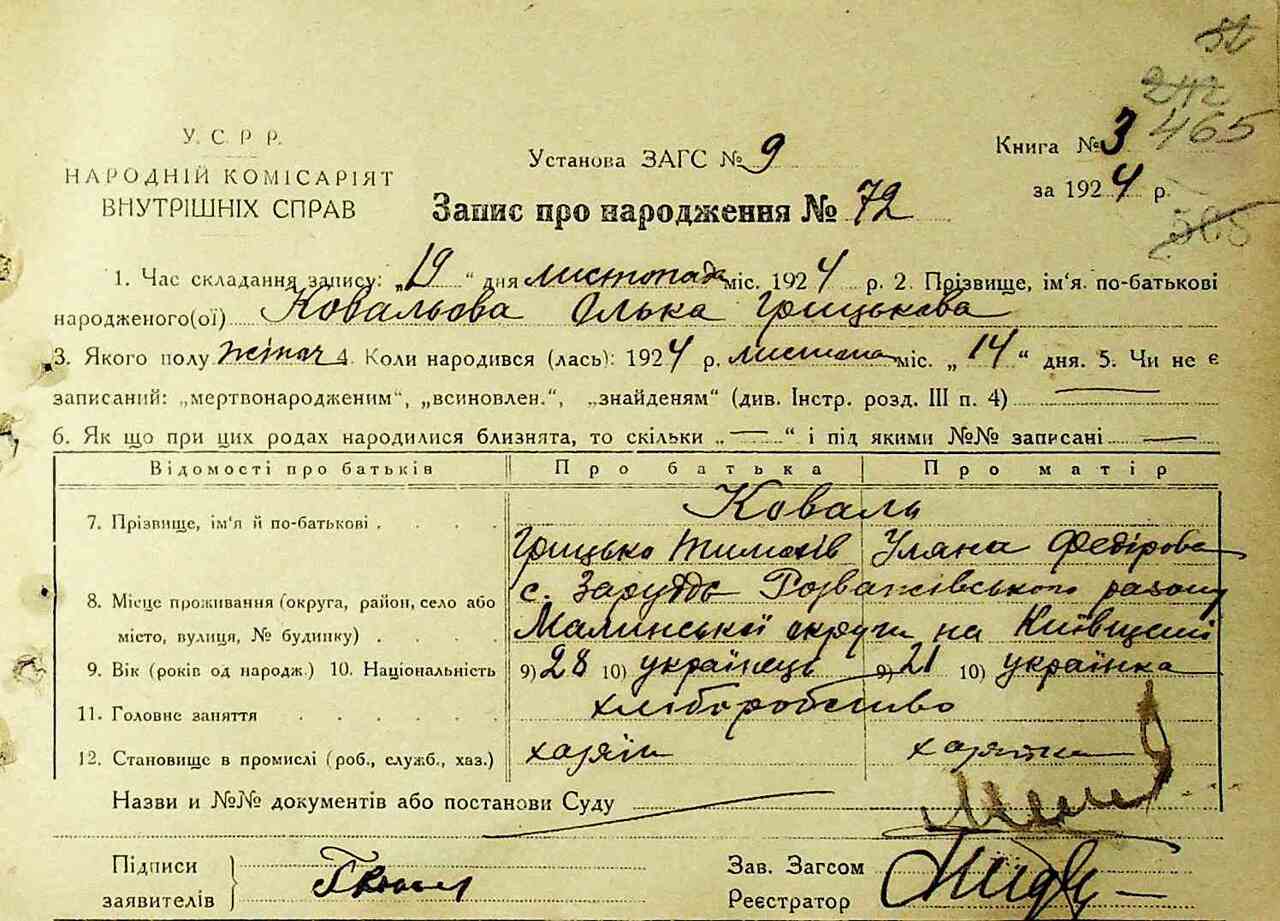 465
У. С. Р Р.
НАРОДНІЙ КОМІСАРІЯТ
ВНУТРІШНІХ СПРАВ
Установа ЗАГС № 9
Книга № 3
за 1924 р.
Запис про народження № 72
1. Час складання запису: „19“ дня листопада міс. 1924 р. 2. Прізвище, ім'я. по-батькові
народженого(ої) Ковальова Олька Грицькова
3. Якого полу жіноч 4. Коли народився (лась): 1924 р. листопа міс. „14“ дня. 5. Чи не є
записаний: „мертвонародженим“, „всиновлен.“, „знайденям“ (див. Інстр. розд. III п. 4) —
6. Як що при цих родах народилися близнята, то скільки „—“ і під якими №№ записані —
Відомості про батьків Про батька Про матір
7. Прізвище, ім'я й по-батькові . . . . Коваль
Грицько Тимохів Уляна Федірова
8. Місце проживання (округа, район, село або с. Заруддє Розважівського району
місто, вулиця, № будинку) . . . . Малинської округи на Київщині
9. Вік (років од народж.) 10. Національність 9) 28 10) українець 9) 21 10) українка
11. Головне заняття . . . . . . хліборобство
12. Становище в промислі (роб., служб., хаз.) хазяїн хазяйка
Назви и №№ документів або постанови Суду —
Підписи
заявителів
Зав. Загсом
Реєстратор